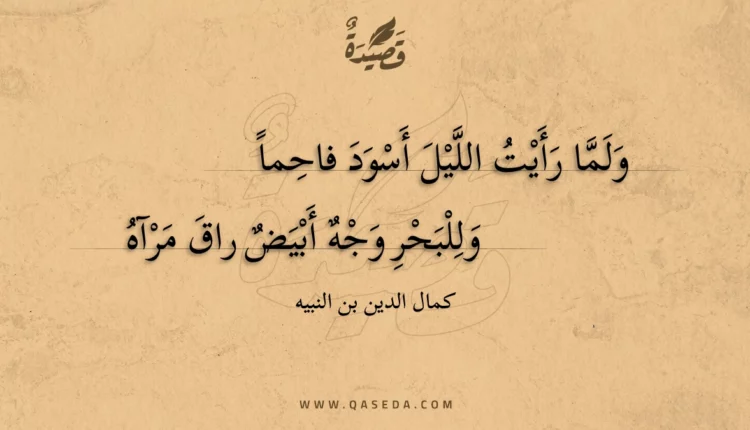 قَصِيدَةٌ
وَلَمَّا رَأَيْتُ اللَّيْلَ أَسْوَدَ فاحِماً
وَلِلْبَحْرِ وَجْهٌ أَبْيَضٌ راقَ مَرْآهُ
كمال الدين بن النبيه
WWW.QASEDA.COM